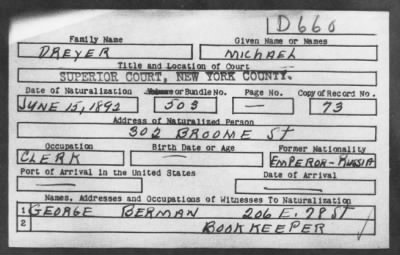 1D660
Family Name Given Name or Names
DREYER MICHAEL
Title and Location of Court
SUPERIOR COURT, NEW YORK COUNTY.
Date of Naturalization Volume or Bundle No. Page No. Copy of Record No.
JUNE 15, 1892 503 — 73
Address of Naturalized Person
302 BROOME St
Occupation Birth Date or Age Former Nationality
CLERK — EMPEROR-RUSSIA
Port of Arrival in the United States Date of Arrival
— —
Names, Addresses and Occupations of Witnesses To Naturalization
1 GEORGE BERMAN 206 E. 79 ST
2 BOOKKEEPER